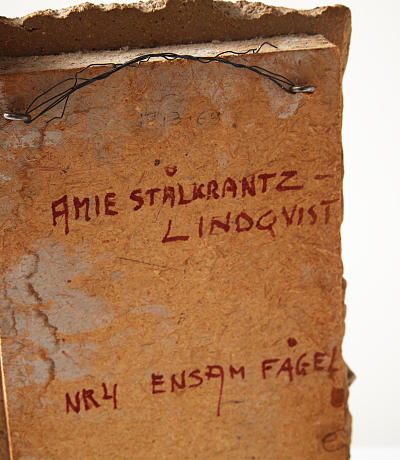 AMIE STÅLKRANTZ -
LINDQVIST
NR4 ENSAM FÅGEL